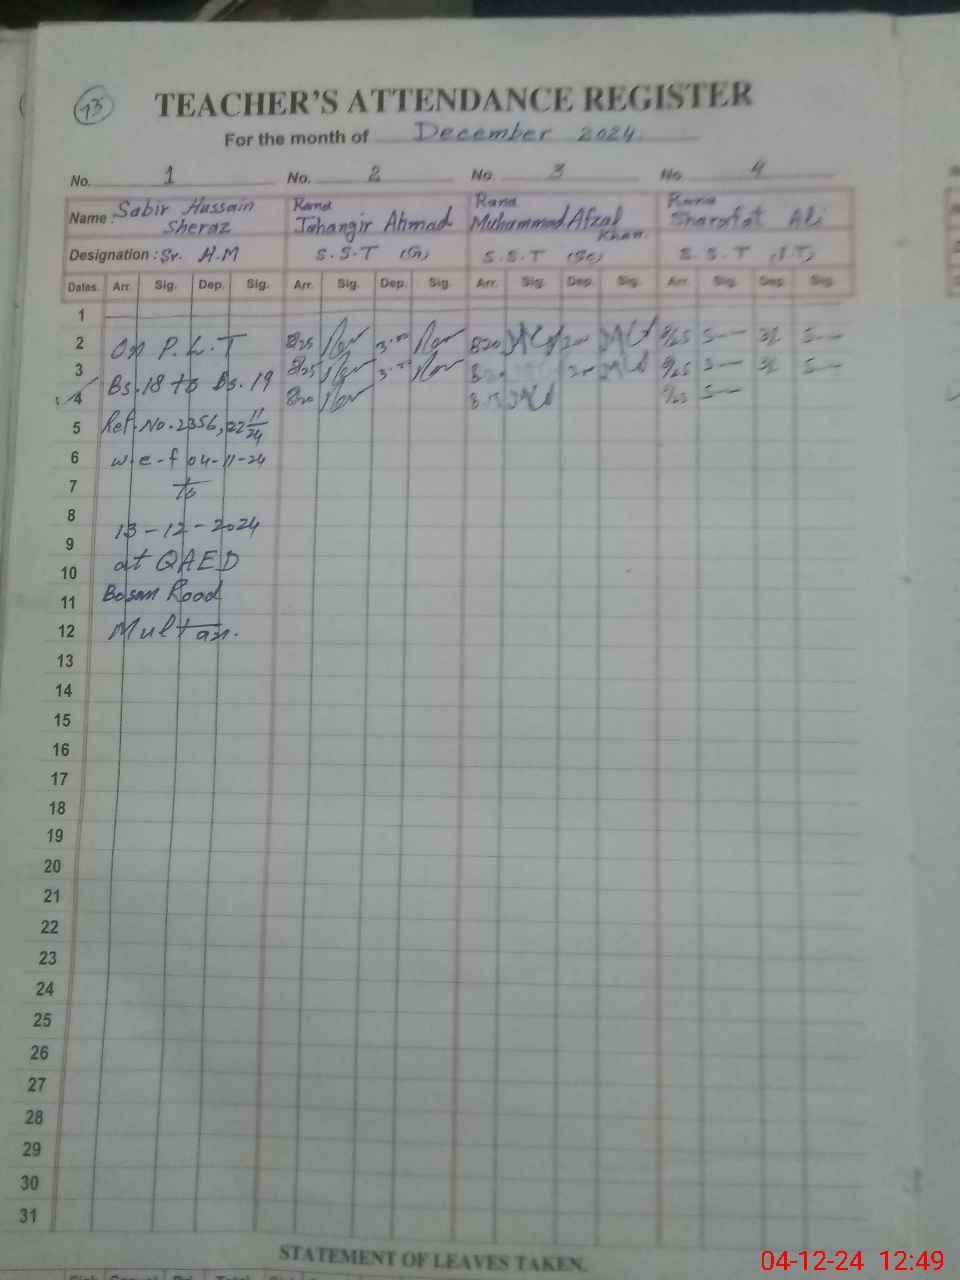 73
TEACHER'S ATTENDANCE REGISTER
For the month of December 2024
No. 1 No. 2 No. 3 No. 4
Name : Sabir Hussain Sheraz Rana Jahangir Ahmad Rana Muhammad Afzal Khan Rana Sharafat Ali
Designation : Sr. H.M S.S.T (G) S.S.T (Sc) S.S.T (I.T)
Dates. Arr. Sig. Dep. Sig. Arr. Sig. Dep. Sig. Arr. Sig. Dep. Sig. Arr. Sig. Dep. Sig.
1
2 On P.L.T 8/25 3:00 820
3 Bs.18 to Bs.19 8/25
4 8/20 8:15
5 Ref.No.2356, 22 11/24
6 w-e-f 04-11-24
7 to
8 13-12-2024
9 at QAED
10
11 Bosan Road
12 Multan.
13
14
15
16
17
18
19
20
21
22
23
24
25
26
27
28
29
30
31
STATEMENT OF LEAVES TAKEN.
04-12-24 12:49